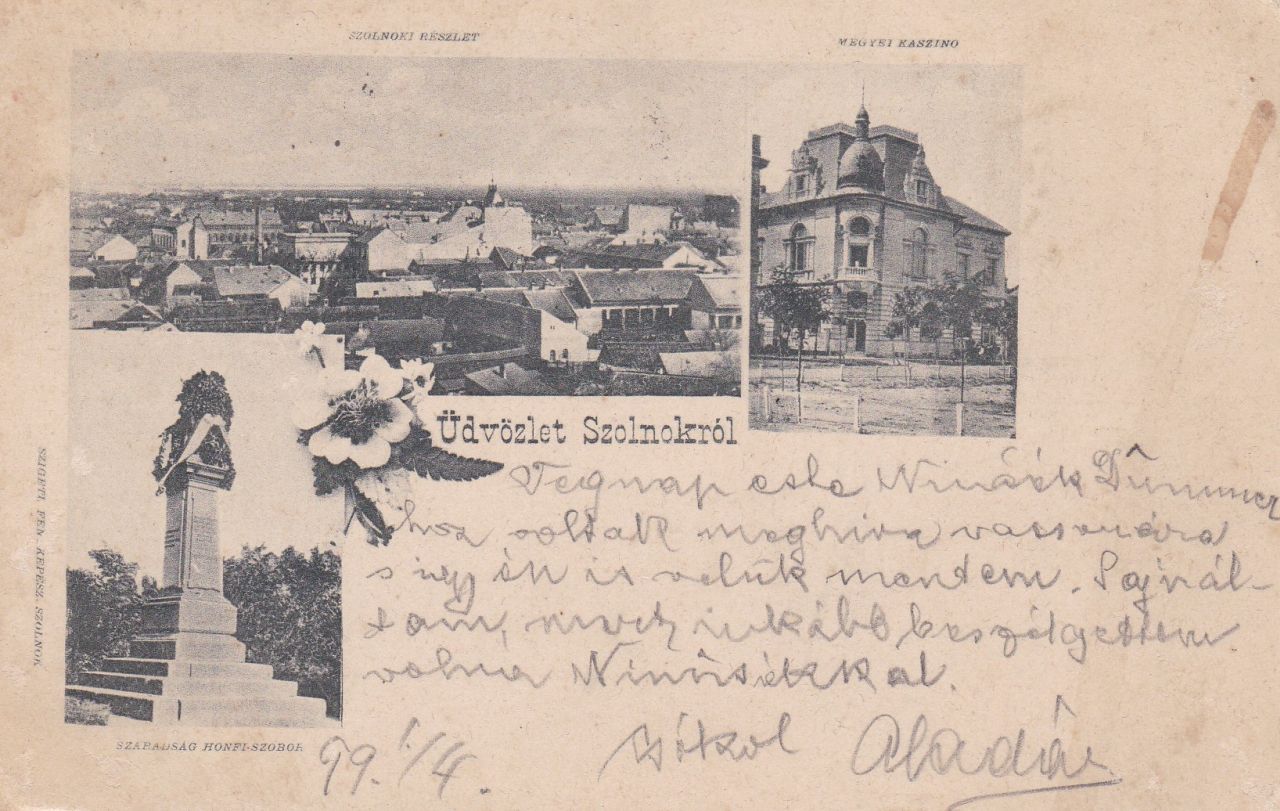 SZOLNOKI RÉSZLET
MEGYEI KASZINO
Üdvözlet Szolnokról
Tegnap este Ninásék
hoz voltak meghiva vacsorára
s igy én is velük mentem. Sajnál-
tam, mert inkább beszélgettem
volna Ninásékkal.
99. 1/4. csókol Aladár
SZABADSÁG HONFI-SZOBOR
SZIGETI, FÉNYKÉPÉSZ, SZOLNOK